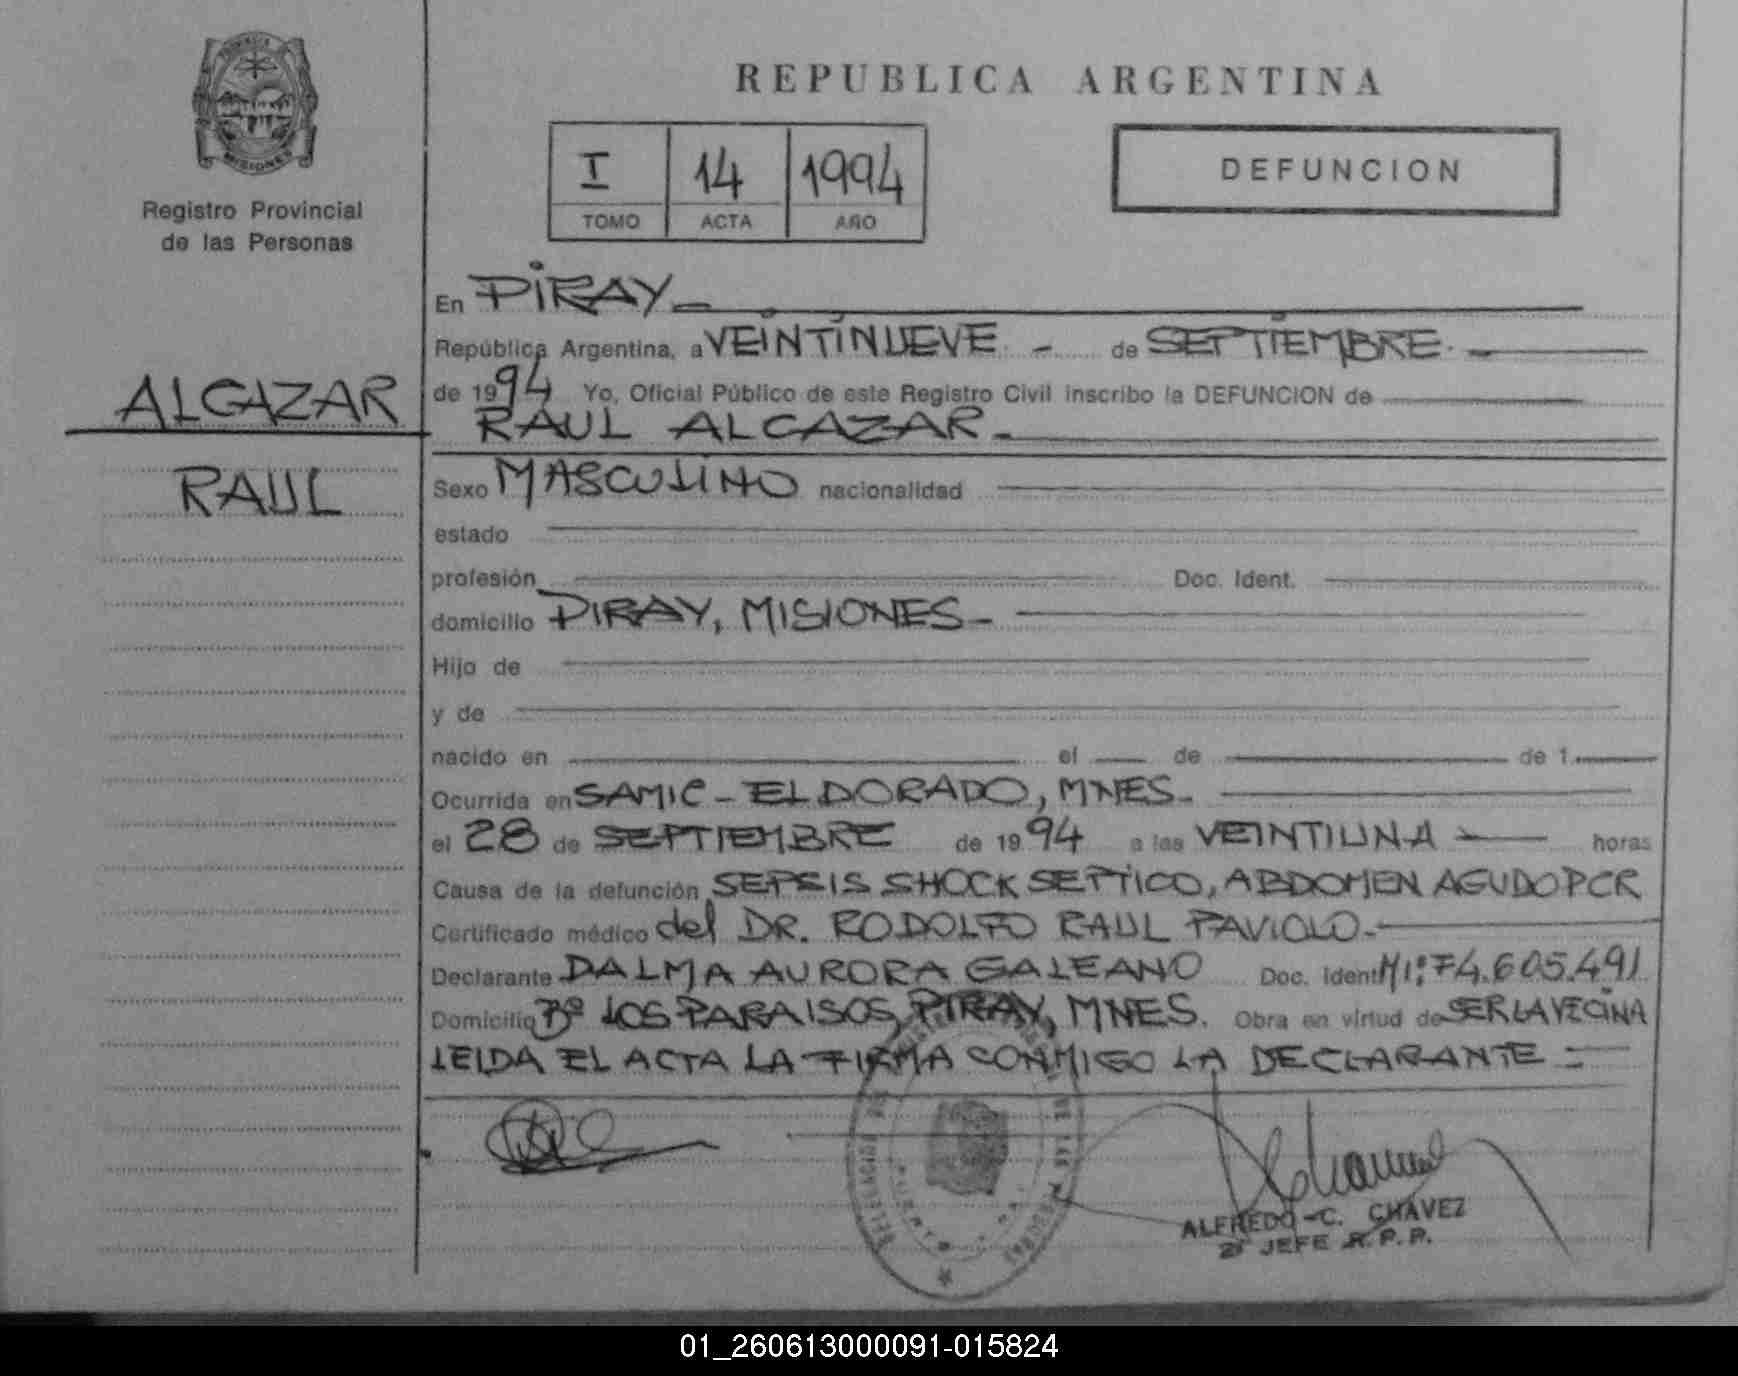 PROVINCIA DE
MISIONES
Registro Provincial
de las Personas
ALCAZAR
RAUL
REPUBLICA ARGENTINA
I 14 1994
TOMO ACTA AÑO
DEFUNCION
En PIRAY
República Argentina, a VEINTINUEVE - de SEPTIEMBRE. -
de 1994 Yo, Oficial Público de este Registro Civil inscribo la DEFUNCION de
RAUL ALCAZAR.
Sexo MASCULINO nacionalidad
estado
profesión Doc. Ident.
domicilio PIRAY, MISIONES
Hijo de
y de
nacido en el de de 1
Ocurrida en SAMIC - ELDORADO, MNES.
el 28 de SEPTIEMBRE de 1994 a las VEINTIUNA horas
Causa de la defunción SEPSIS SHOCK SEPTICO, ABDOMEN AGUDO PCR
Certificado médico del DR. RODOLFO RAUL PAVIOLO.
Declarante DALMA AURORA GALEANO Doc. Ident MI: F4.605.491
Domicilio Bº LOS PARAISOS, PIRAY, MNES. Obra en virtud de SER LA VECINA
LEIDA EL ACTA LA FIRMA CONMIGO LA DECLARANTE =
ALFREDO C. CHAVEZ
2º JEFE R.P.P.
01_260613000091-015824